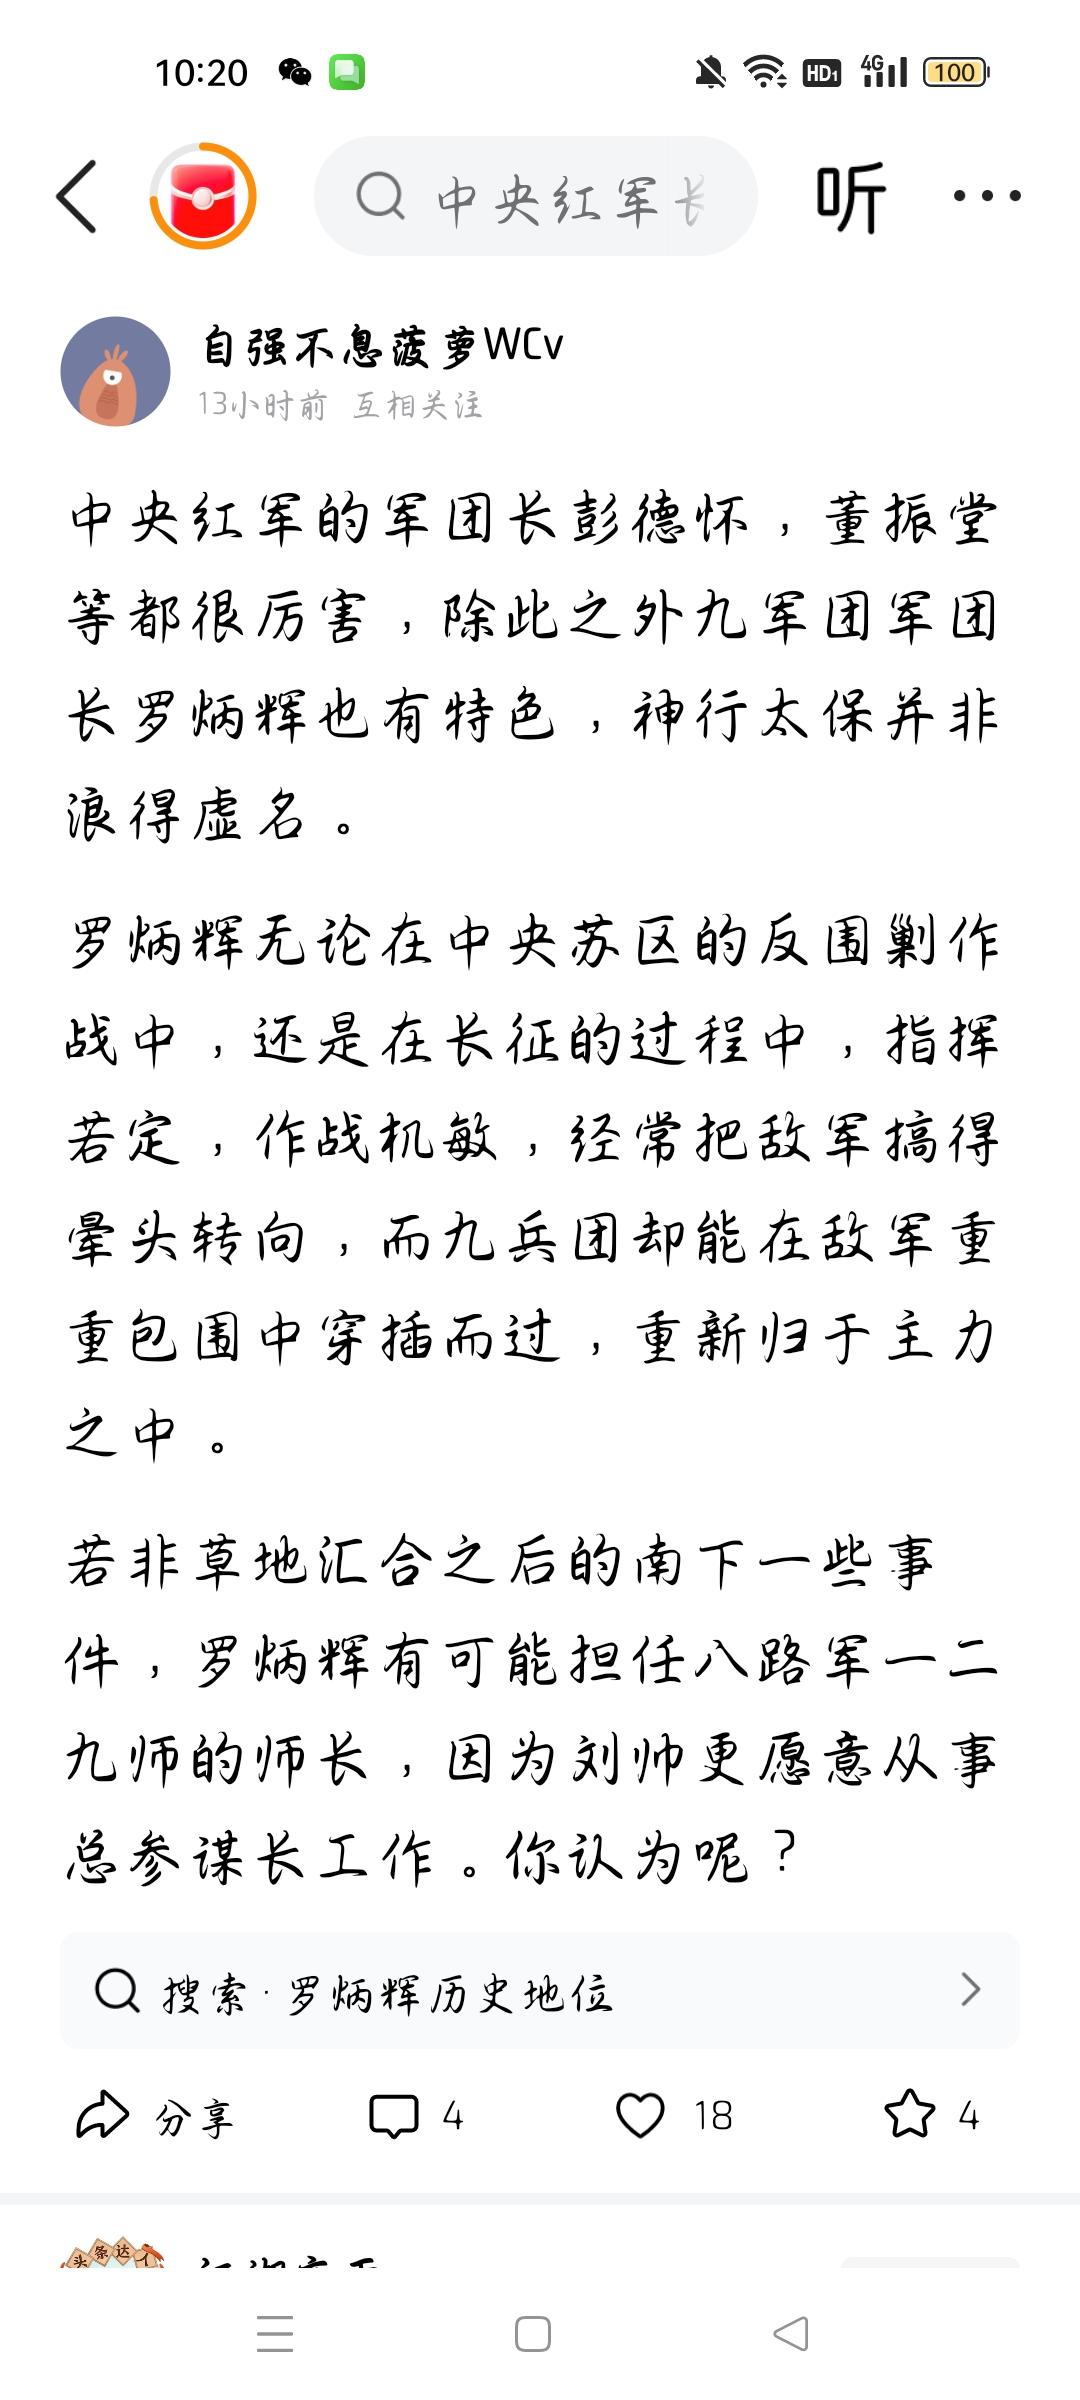 10:20
HD1 4G 100
中央红军长
听
自强不息菠萝WCv
13小时前 互相关注
中央红军的军团长彭德怀，董振堂
等都很厉害，除此之外九军团军团
长罗炳辉也有特色，神行太保并非
浪得虚名。
罗炳辉无论在中央苏区的反围剿作
战中，还是在长征的过程中，指挥
若定，作战机敏，经常把敌军搞得
晕头转向，而九兵团却能在敌军重
重包围中穿插而过，重新归于主力
之中。
若非草地汇合之后的南下一些事
件，罗炳辉有可能担任八路军一二
九师的师长，因为刘帅更愿意从事
总参谋长工作。你认为呢？
搜索·罗炳辉历史地位
分享 4 18 4
头条达人